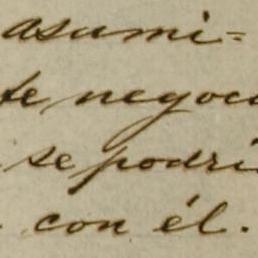 asumi=
te negoci
se podri
con él.